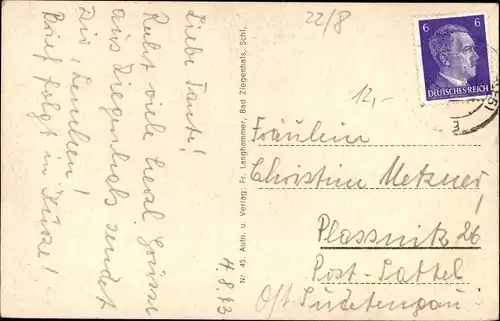 22/8
12,-
6 6
DEUTSCHES REICH
Liebe Tante!
Recht viele herzl. Grüsse
aus Ziegenhals sendet
Dir, Lenchen!
Brief folgt in Kürze!
4.8.43
Nr. 45. Aufn. u. Verlag: Fr. Langhammer, Bad Ziegenhals, Schl.
Fräulein
Christine Metzner
Plassnik 26
Post-Sattel
Ost-Sudetengau!